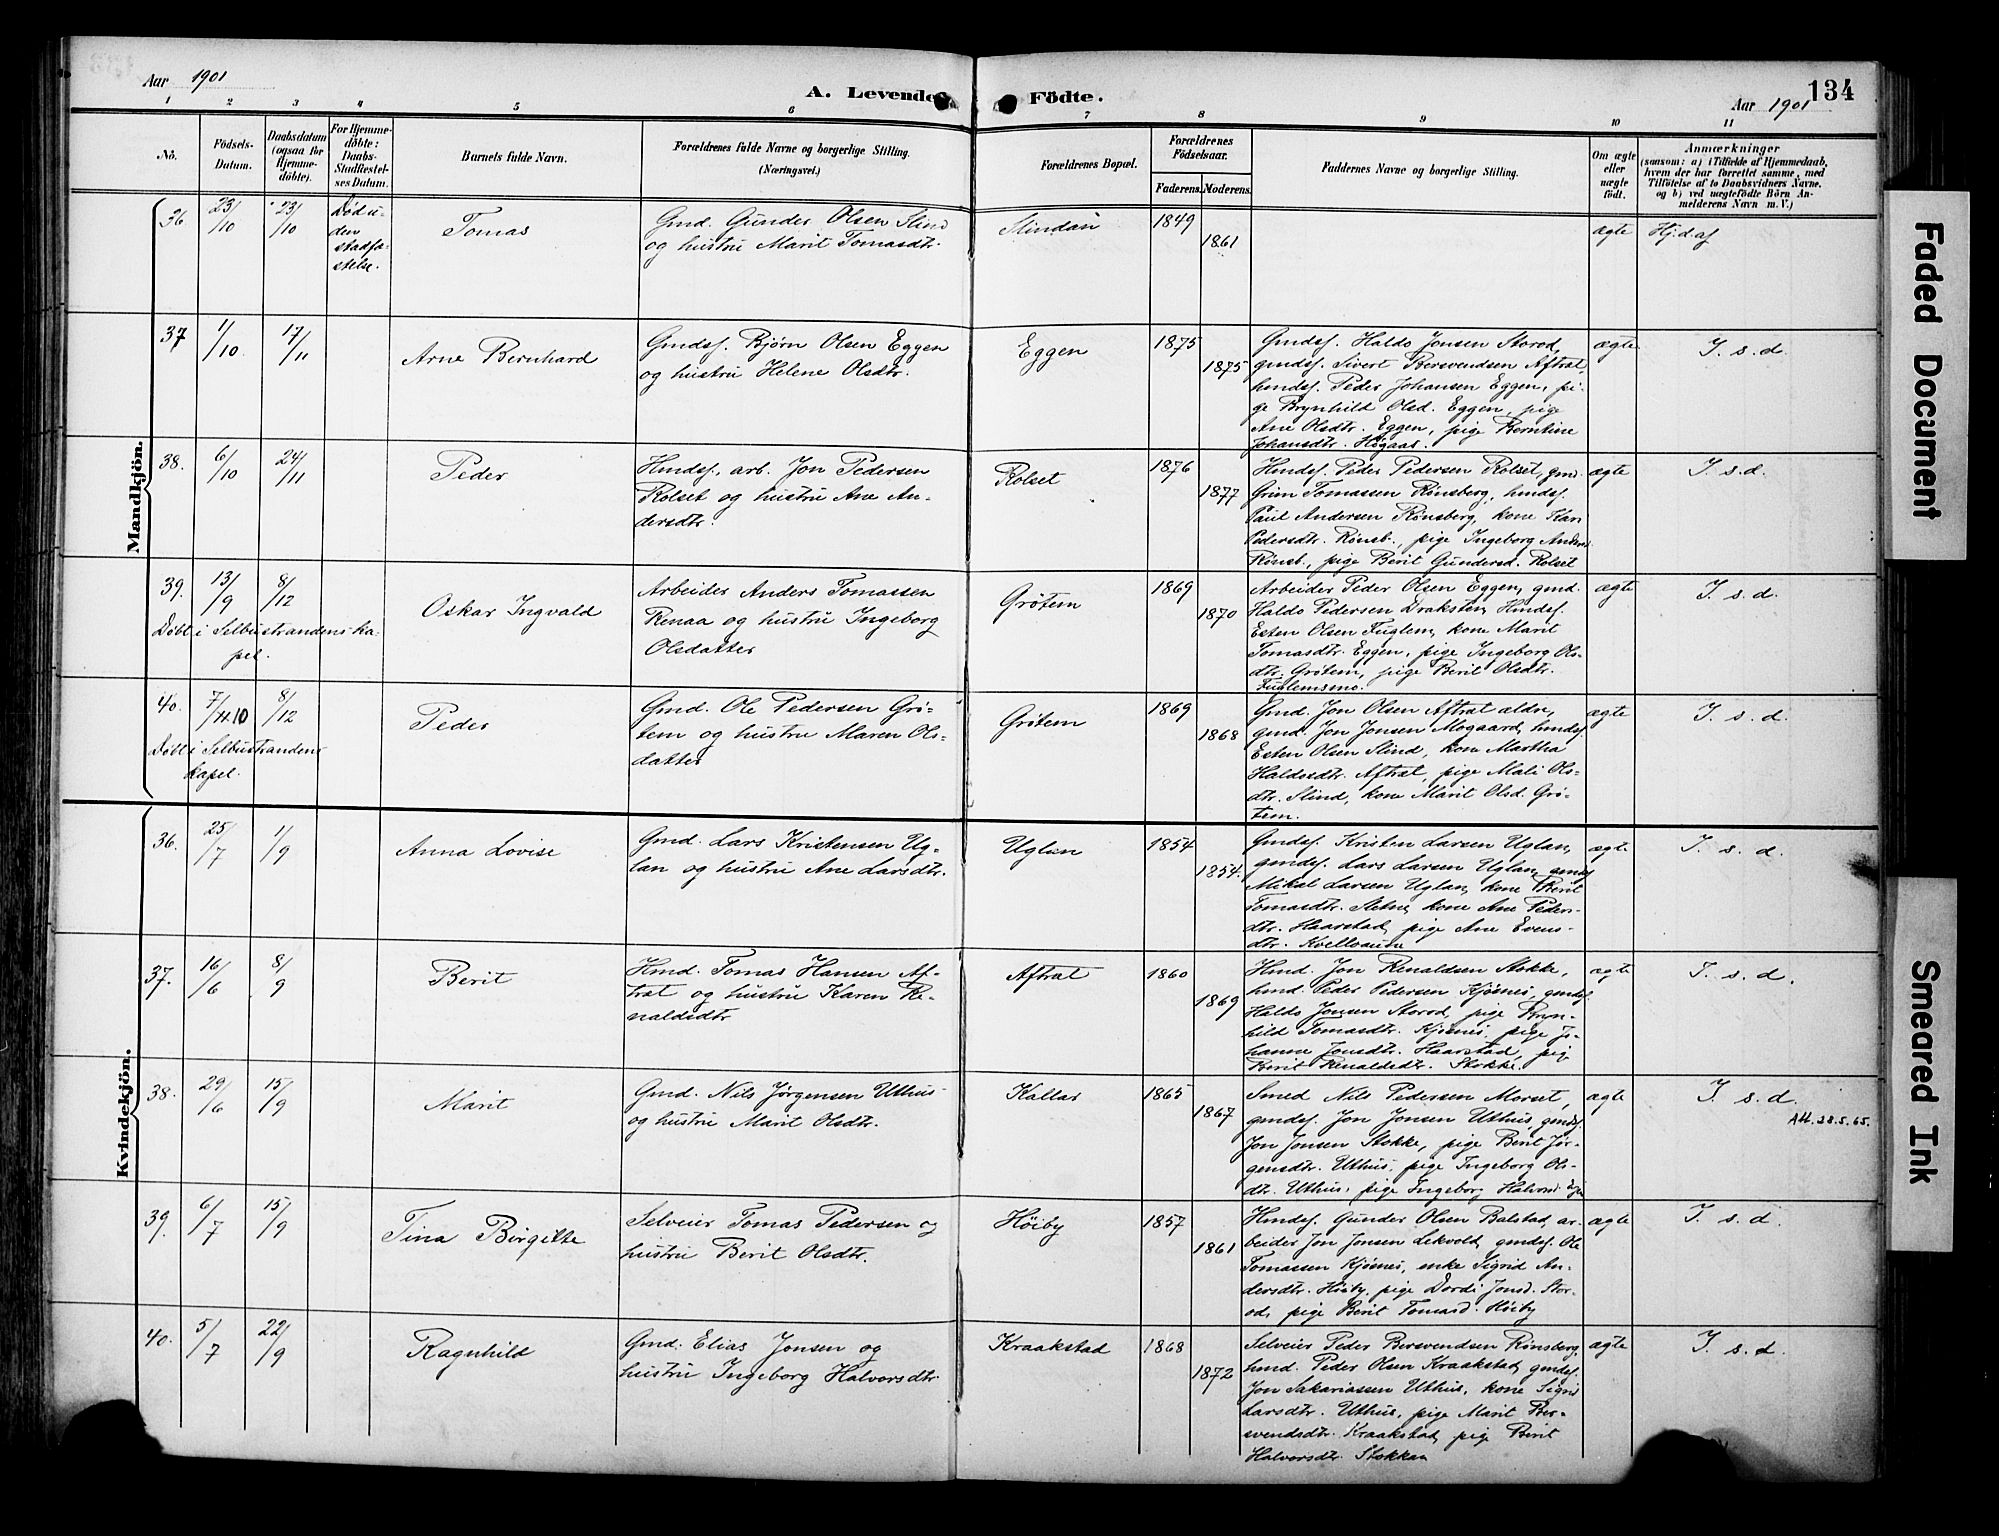 Aar 1901
A. Levende Födte.
134
Aar 1901
1 2 3 4 5 6 7 8 9 10 11
Nò.
Födsels-Datum.
Daabsdatum (ogsaa for Hjemme-döbte).
For Hjemme-döbte: Daabs-Stadfestel-ses Datum.
Barnets fulde Navn.
Forældrenes fulde Navne og borgerlige Stilling.
(Næringsvei.)
Forældrenes Bopæl.
Forældrenes Födselsaar.
Faderens. Moderens.
Faddernes Navne og borgerlige Stilling.
Om ægte eller uægte födt.
Anmærkninger
(saasom: a) i Tilfælde af Hjemmedaab, hvem der har forrettet samme, med Tilföielse af to Daabsvidners Navne, og b) ved uægtefödte Börn An-melderens Navn m. V.)
Mandkjön.
36. 23/10 23/10
Död u-
den
stadfæ-
stelse.
Tomas
Gmd. Gunder Olsen Slind
og hustru Marit Tomasdtr.
Slindan
1849
1861
ægte
Hj. d. af
37 1/10 17/11
Arne Bernhard
Gmdsf. Bjørn Olsen Eggen
og hustru Helene Olsdtr.
Eggen
1875
1875
Gmdsf. Haldo Jonsen Storød,
gmdsf. Sivert Bersvendsen Aftret
hmdsf. Peder Johansen Eggen, pi-
ge Brynhild Olsd. Eggen, pige
Ane Olsdtr. Eggen, pige Berntine
Johansdtr. Høgaas.
ægte
I. s. d.
38. 6/10 24/11
Peder
Hmdsf. arb. Jon Pedersen
Rolset og hustru Ane An-
dersdtr.
Rolset
1876
1877
Hmdsf. Peder Pedersen Rolset, gmd.
Grim Tomassen Rönsberg, hmdsf.
Paul Andersen Rönsberg, kone Kari
Pedersdtr. Rönsb., pige Ingeborg Anders
Rönsb., pige Berit Gundersd. Rolset
ægte
I. s. d.
39. 13/9 8/12
Döbt i Selbustrandens ka-
pel.
Oskar Ingvald
Arbeider Anders Tomassen
Renaa og hustru Ingeborg
Olsdatter
Grötem
1869
1870
Arbeider Peder Olsen Eggen, gmd.
Haldo Pedersen Draksten, Hmdsf.
Esten Olsen Fuglem, kone Marit
Tomasdtr. Eggen, pige Ingeborg Ols-
dtr. Grötem, pige Berit Olsdtr.
Fuglemsmo.
ægte
I. s. d.
40. 7/11 10 8/12
Döbt i Selbustrandens
kapel.
Peder
Gmd. Ole Pedersen Grö-
tem og hustru Maren Ols-
datter
Grötem
1869
1868
Gmd. Jon Olsen Aftret ældre,
gmd. Jon Jonsen Mogaard, hmdsf.
Esten Olsen Slind, kone Martha
Haldosdtr. Aftret, pige Mali Ols-
dtr. Slind, kone Marit Olsd. Grö-
tem.
ægte
I. s. d.
Kvindekjön.
36. 25/7 1/9
Anna Lovise
Gmd. Lars Kristensen Ug-
lan og hustru Ane Larsdtr.
Uglan
1854
1854.
Gmdsf. Kristen Larsen Uglan,
gmdsf. Lars Larsen Uglan, gmdsf.
Mikal Larsen Uglan, kone Berit
Tomasdtr. Setne, kone Ane Peders-
dtr. Haarstad, pige Ane Evens-
dtr. Kvelloaune
ægte
I. s. d.
37. 16/6 8/9
Berit
Hmd. Tomas Hansen Af-
tret og hustru Karen Re-
naldsdtr
Aftret
1860
1869
Hmd. Jon Renaldsen Stokke,
hmd. Peder Pedersen Kjøsnes, gmdsf.
Haldo Jonsen Storød, pige Bryn-
hild Tomasdtr. Kjøsnes, pige Jo-
hanne Jonsdtr. Haarstad, pig
Berit Renaldsdtr. Stokke.
ægte
I. s. d.
38. 29/6 15/9
Marit
Gmd. Nils Jørgensen Uthus
og hustru Marit Olsdtr.
Kallar
1865
1867
Smed Nils Pedersen Morset,
gmdsf. Jon Jonsen Uthus, gmdsf.
Jon Jonsen Stokke, pige Berit Jör-
gensdtr. Uthus, pige Ingeborg Ols-
dtr. Uthus, pige Ingeborg Halvorsd.
ægte
I. s. d.
39. 6/7 15/9
Tina Birgitte
Selveier Tomas Pedersen og
hustru Berit Olsdtr.
Höiby
1857
1861
Hmdsf. Gunder Olsen Balstad, ar-
beider Jon Jonsen Lekvold, gmdsf. Ole
Tomassen Kjøsnes, enke Sigrid An-
dersdtr. Höiby, pige Dordi Jonsd. Stor-
ød, pige Berit Tomasd. Höiby
ægte
I. s. d.
40. 5/7 22/9
Ragnhild
Gmd. Elias Jonsen og
hustru Ingeborg Halvorsdtr.
Kraakstad
1868
1872
Selveier Peder Bersvendsen Rönsberg,
hmd. Peder Olsen Kraakstad, gmdsf.
Jon Sakariassen Uthus, kone Sigrid
Larsdtr. Uthus, pige Marit Ber-
svendsdtr. Kraakstad, pige Berit
Halvorsdtr. Stokkan
ægte
I. s. d.
Faded Document
Smeared Ink